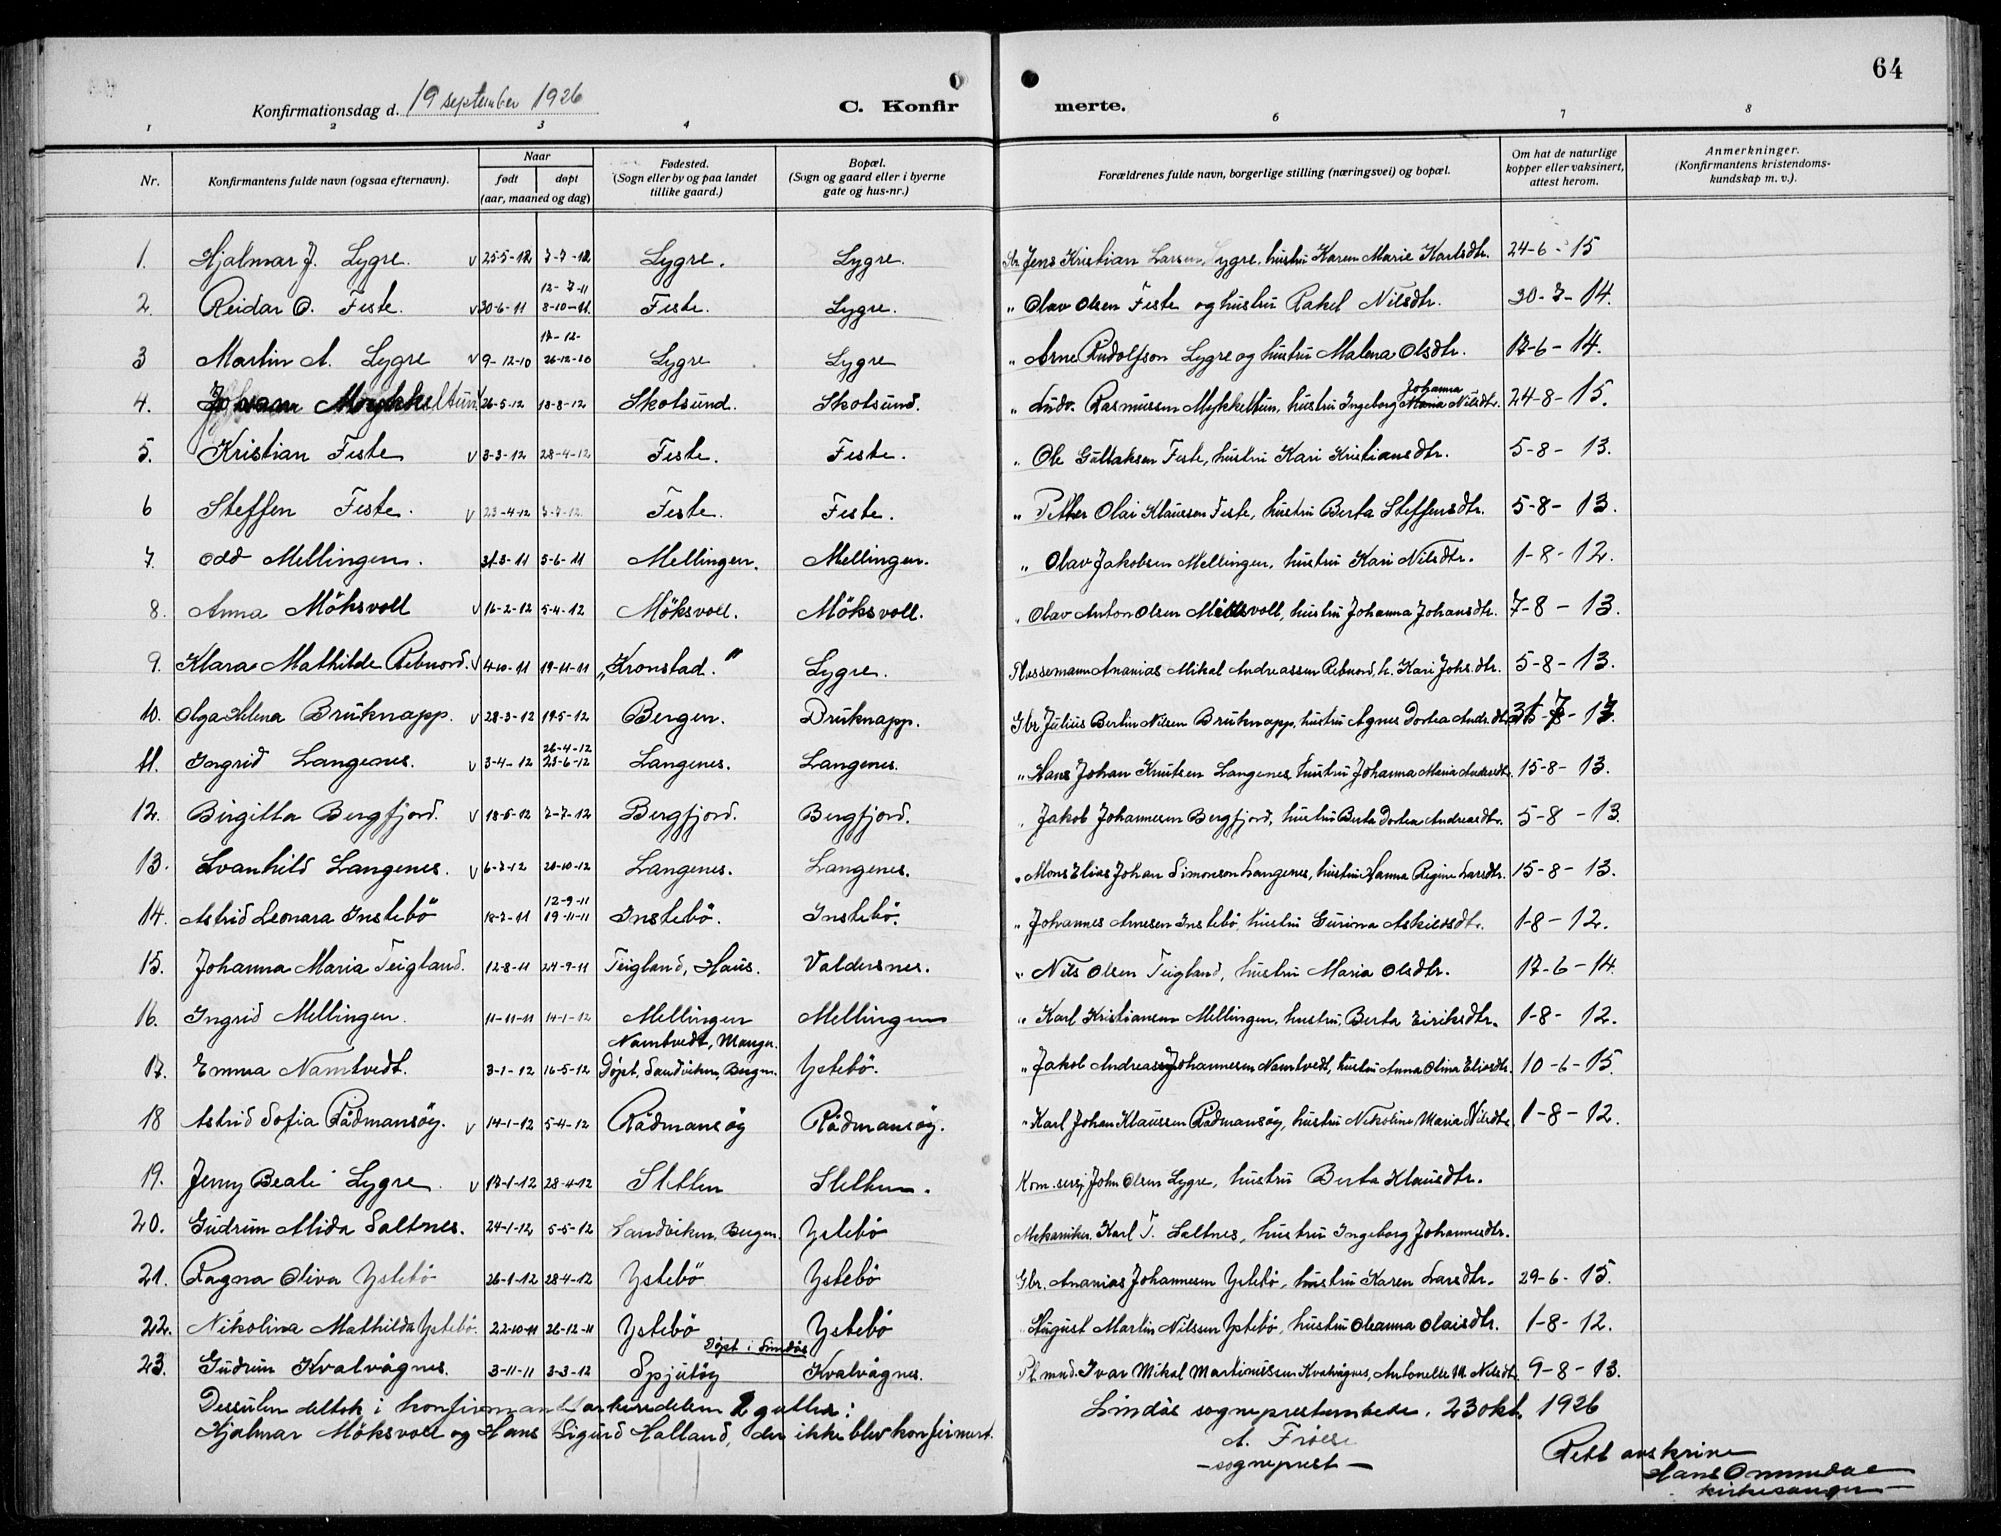 64
Konfirmationsdag d. 19 september 1926 C. Konfir merte.
1 2 3 4 6 7 8
Nr. Konfirmantens fulde navn (ogsaa efternavn). Naar født døpt (aar, maaned og dag) Fødested. (Sogn eller by og paa landet tillike gaard.) Bopæl. (Sogn og gaard eller i byerne gate og hus-nr.) Forældrenes fulde navn, borgerlige stilling (næringsvei) og bopæl. Om hat de naturlige kopper eller vaksinert, attest herom. Anmerkninger. (Konfirmantens kristendomskundskap m. v.).
1. Hjalmar J. Lygre. v 25-5-12 7-7-12 Lygre. Lygre. Jens Kristian Larsen Lygre, hustru Karen Marie Karlsdtr. 24-6-15
2. Reidar O. Feste. v 30-6-11 12-7-11 8-10-11. Feste. Lygre. " Olav Olsen Feste og hustru Rakel Nilsdtr. 30-7-14.
3 Martin A. Lygre v 9-12-10 17-12- 26-12-10 Lygre Lygre " Arne Rudolfson Lygre og hustru Malena Olsdtr. 17-6-14.
4. Mykkeltun 26-5-12 18-8-12 Skotsund. Skotsund. " Ludv. Rasmussen Mykkeltun, hustru Ingeborg Johanna Nilsdtr. 24-8-15.
5. Kristian Feste v 3-3-12 28-4-12 Feste. Feste. " Ole Gullaksen Feste, hustru Kari Kristiansdtr. 5-8-13.
6 Steffen Feste. v 23-4-12 7-7-12 Feste. Feste. " Petter Olai Klaussen Feste, hustru Berta Steffensdtr. 5-8-13.
7. Odd Mellingen. 31-3-11 5-6-11 Mellingen. Mellingen. " Olav Jakobsen Mellingen, hustru Kari Nilsdtr. 1-8-12.
8. Anna Möksvoll v 16-2-12 5-4-12 Möksvoll. Möksvoll. " Olav Anton Olsen Möksvoll, hustru Johanna Johansdtr. 7-8-13.
9. Klara Mathilde Rebnord. v 4-10-11 19-11-11 "Kronstad." Lygre. Plassemann Ananias Mikal Andreassen Rebnord, h. Kari Johs.dtr. 5-8-13.
10. Olga Helena Bruknapp. v 28-3-12 19-5-12 Bergen. Bruknapp. Gbr. Julius Bertin Nilsen Bruknapp, hustru Agnes Dortea Andr.dtr.
11. Ingrid Langenes. v 3-4-12 26-4-12 23-6-12 Langenes. Langenes. " Hans Johan Knutsen Langenes hustru Johanna Maria Andersdtr. 15-8-13.
12. Birgitta Bergfjord. v 18-5-12 7-7-12 Bergfjord. Bergfjord. " Jakob Johannesen Bergfjord, hustru Berta Dortea Andreasdtr. 5-8-13.
13. Svanhild Langenes. v 6-7-12 20-10-12 Langenes. Langenes. " Mons Elias Johan Simonson Langenes, hustru Hanna Regine Larsdtr. 15-8-13.
14. Astrid Leonara Instebö 18-7-11 12-9-11 19-11-11 Instebö. Instebö. " Johannes Arnesen Instebö, hustru Gurina Askildsdtr. 1-8-12.
15. Johanna Maria Teigland. 12-8-11 24-9-11 Teigland, Haus. Valdersnes. " Nils Olsen Teigland, hustru Maria Olsdtr. 17-6-14.
16. Ingrid Mellingen. 11-11-11 14-1-12 Mellingen Mellingen " Karl Kristiansen Mellingen, hustru Berta Eiriksdtr. 1-8-12.
17. Emma Namtvedt. 3-1-12 16-5-12 Namtvedt, Manger. Døpt, Sandviken, Bergen. Ystebö. " Jakob Andreas Johannesen Namtvedt, hustru Anna Olina Eliasdtr. 10-6-15.
18 Astrid Sofia Rådmansöy. v 14-1-12 5-4-12 Rådmansöy Rådmansöy. " Karl Johan Klaussen Rådmansöy, hustru Nikoline Maria Nilsdtr. 1-8-12.
19. Jenny Beate Lygre v 17-1-12 28-4-12 Sletten Sletten. John Olsen Lygre, hustru Berta Klausdtr.
20. Gudrun Alida Saltnes. 24-1-12 5-5-12 Sandviken, Bergen. Ystebö Mekaniker Karl T. Saltnes, hustru Ingeborg Johannesdtr.
21. Ragna Oliva Ystebö 26-1-12 28-4-12 Ystebö Ystebö Gbr. Ananias Johannesen Ystebö, hustru Karen Larsdtr. 29-6-15.
22. Nikolina Mathilda Ystebö. 22-10-11 26-12-11 Ystebö Ystebö August Martin Nilssen Ystebö, hustru Oleanna Olaisdtr. 1-8-12.
23. Gudrun Kvalvågnes. 3-11-11 3-3-12 Döpt i Lindås Spjutöy Kvalvågnes. Pl.mnd. Ivar Mikal Martinussen Kvalvågnes, Antonelle M. Nilsdt. 9-8-13.
Dessuten deltok i konfirmantforberedelsen 2 gutter: Lindås sogneprestembede, 23 okt. 1926
Hjalmar Möksvoll og Hans Sigurd Halland, der ikke blev konfirmert. A. Fröese
-sogneprest-
Rett avskrive
Hans Ommedal
kirkesanger